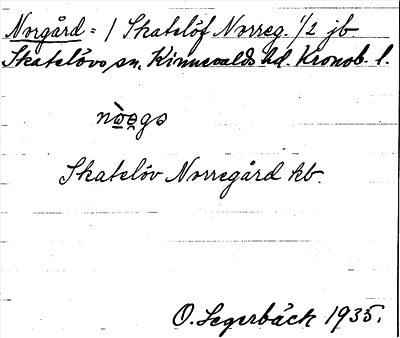 Norgård = 1 Skatelöf Norreg. 1/2 jb
Skatelövs sn. Kinnevalds hd. Kronob. l.
Skatelöv Norregård kb.
O. Segerbäck 1935.